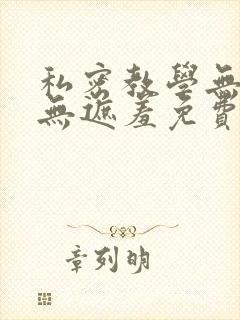 私密教學無
無遮羞免費
章列明